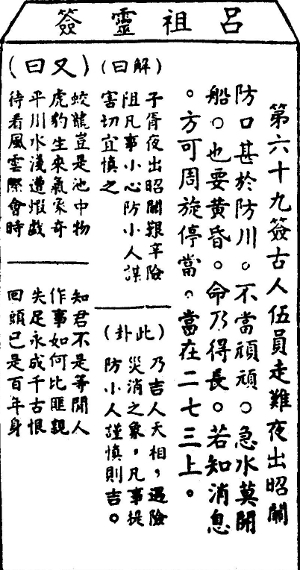 呂祖靈簽
第六十九簽古人伍員走難夜出昭關
防口甚於防川。不當頑頑。急水莫開
船。也要黃昏。命乃得長。若知消息
。方可周旋停當。當在二七三上。
(解曰)
子胥夜出昭關艱辛險
阻凡事小心防小人謀
害切宜慎之
(此卦)
乃吉人天相,遇險
災消之象,凡事提
防小人謹慎則吉。
(又曰)
蛟龍豈是池中物
虎豹生來氣象奇
平川水淺遭蝦戲
待看風雲際會時
知君不是等閒人
作事如何比匪親
失足永成千古恨
回頭已是百年身